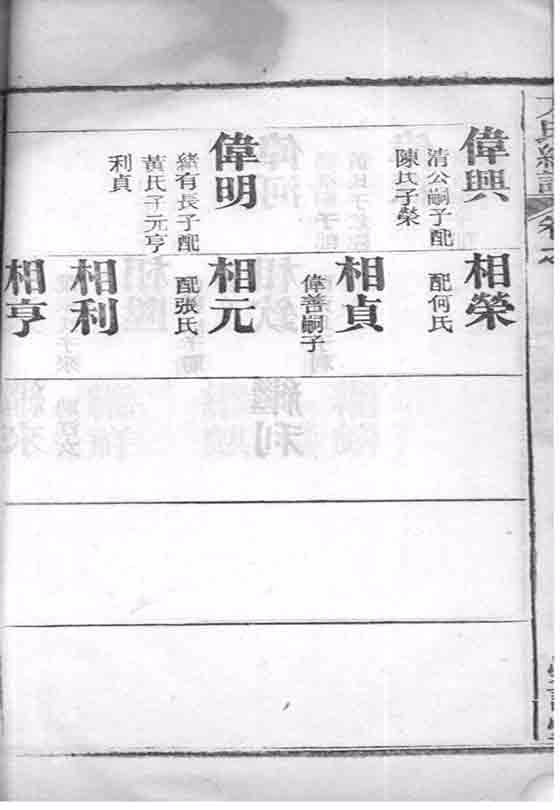 偉興
清公嗣子配
陳氏子榮
偉明
緒有長子配
黃氏子元亨
利貞
相榮
配何氏
相貞
偉善嗣子
相元
配張氏
相利
相亨